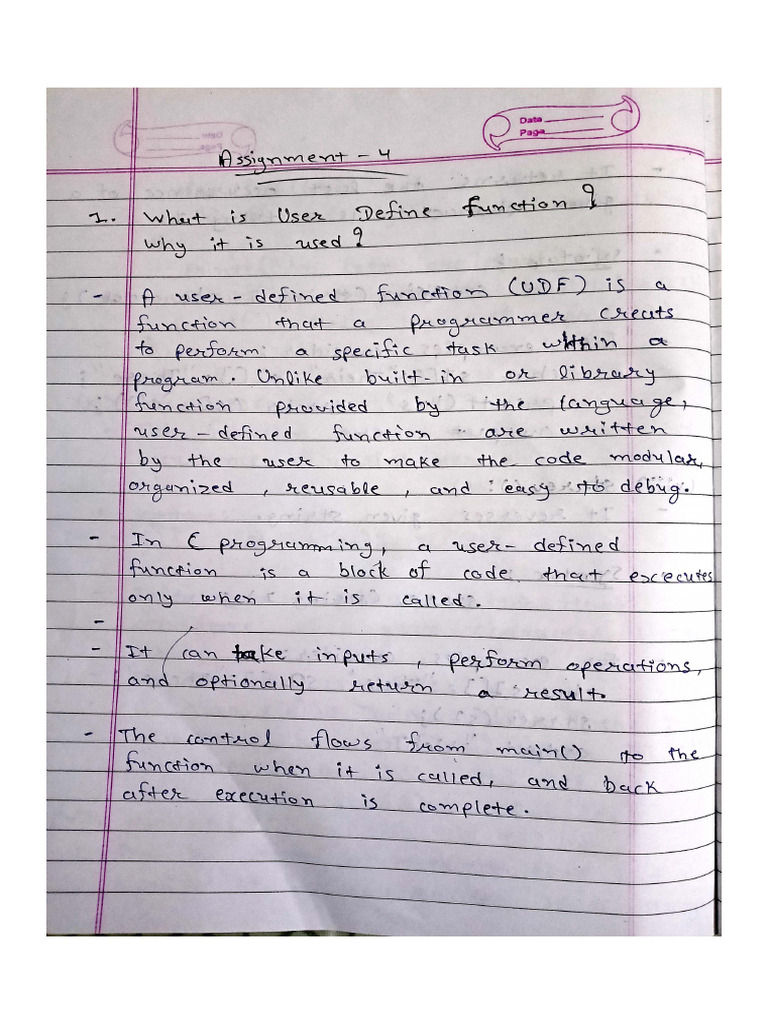 Date
Page
Assignment - 4
1. What is User Define function?
why it is used?
- A user-defined function (UDF) is a
function that a programmer creats
to perform a specific task within a
program. Unlike built-in or library
function provided by the language,
user-defined function are written
by the user to make the code modular,
organized, reusable, and easy to debug.
- In C programming, a user-defined
function is a block of code that excecutes
only when it is called.
-
- It can take inputs, perform operations,
and optionally return a result.
- The control flows from main() to the
function when it is called, and back
after execution is complete.